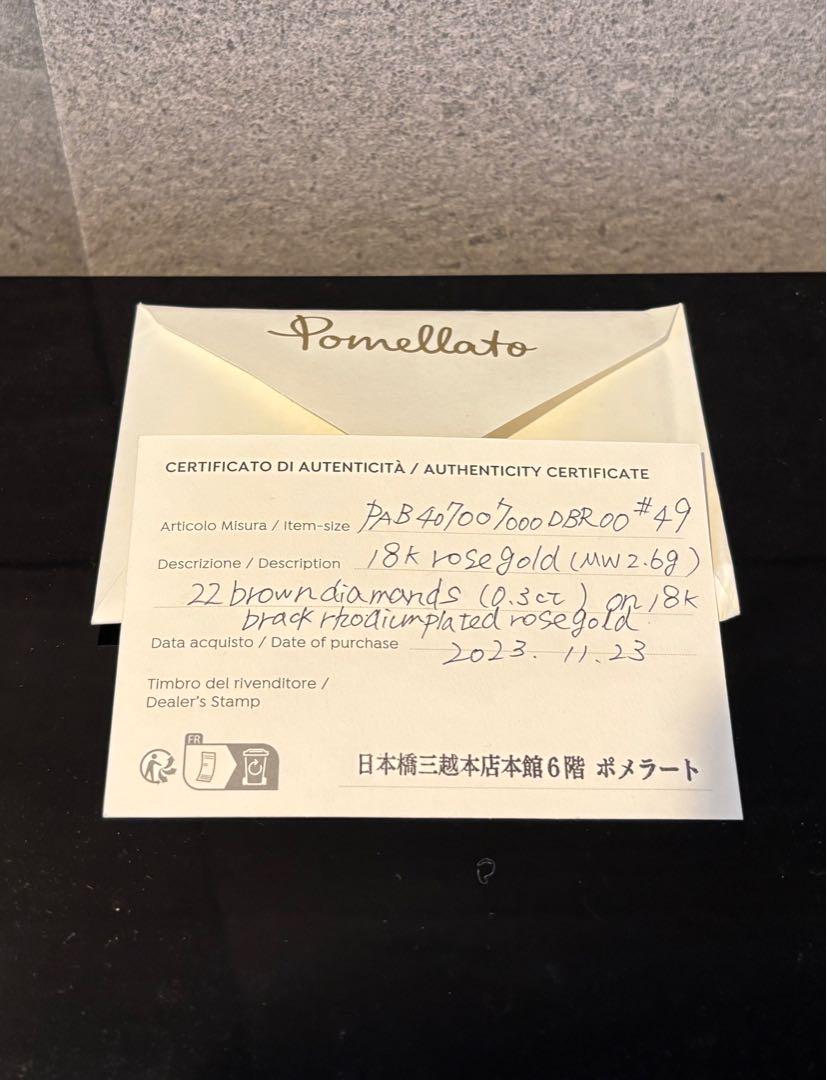 Pomellato
CERTIFICATO DI AUTENTICITÀ / AUTHENTICITY CERTIFICATE
Articolo Misura / Item-size PAB407007000DBR00 #49
Descrizione / Description 18K rose gold (MW 2.6g)
22 brown diamonds (0.3ct) on 18K
brack rhodiumplated rose gold.
Data acquisto / Date of purchase 2023. 11. 23
Timbro del rivenditore /
Dealer's Stamp
FR
日本橋三越本店本館6階 ポメラート